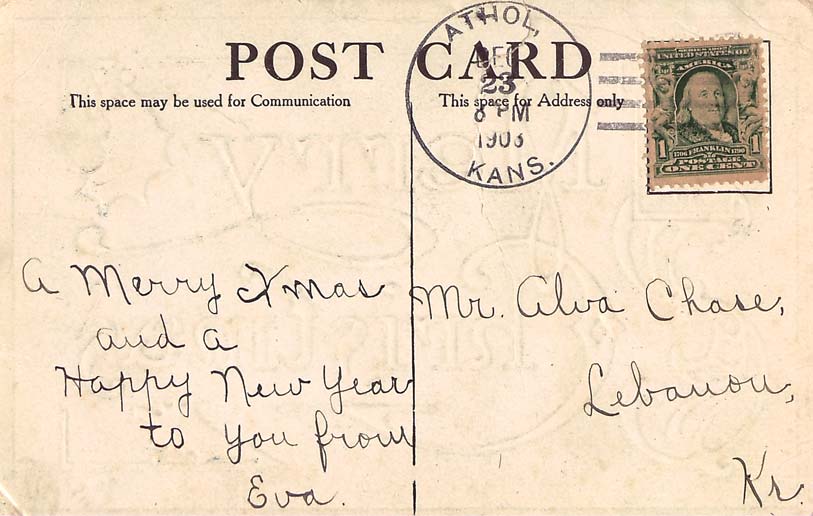 POST CARD
This space may be used for Communication
This space for Address only
ATHOL,
DEC
23
8 PM
1908
KANS.
SERIES 1902
UNITED STATES OF
AMERICA
1 1706 FRANKLIN 1790 1
POSTAGE
ONE CENT
A Merry Xmas
and a
Happy New Year
to you from
Eva.
Mr. Alva Chase,
Lebanon,
Ks.